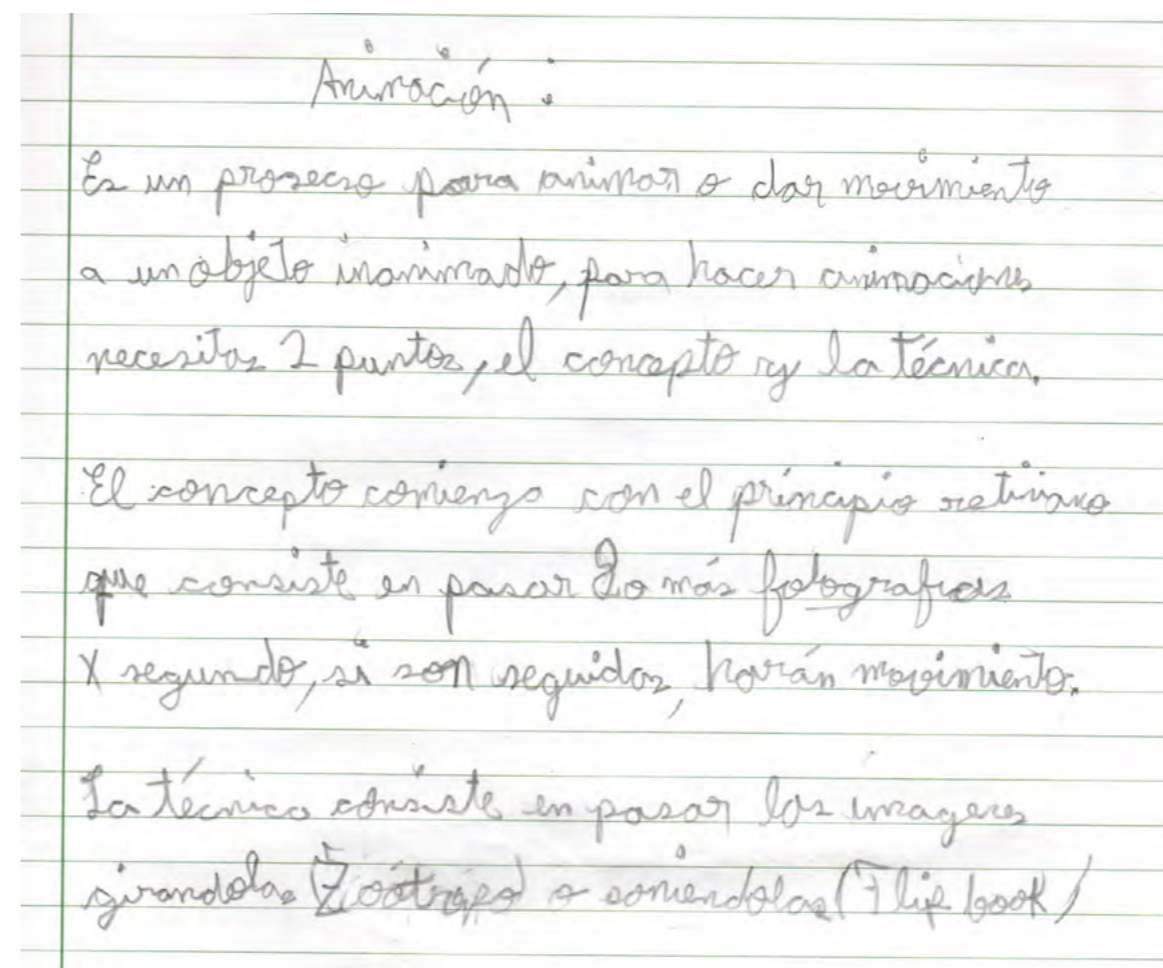 Animación :
Es un prosecso para animar o dar movimiento
a un objeto inanimado, para hacer animaciones
necesitas 2 puntos, el concepto y la técnica.
El concepto comienza con el principio retiniano
que consiste en pasar 2 o más fotografías
X segundo, si son seguidas, harán movimiento.
La técnica consiste en pasar las imagenes
girandolas (Zoótropo) o (Flip book)